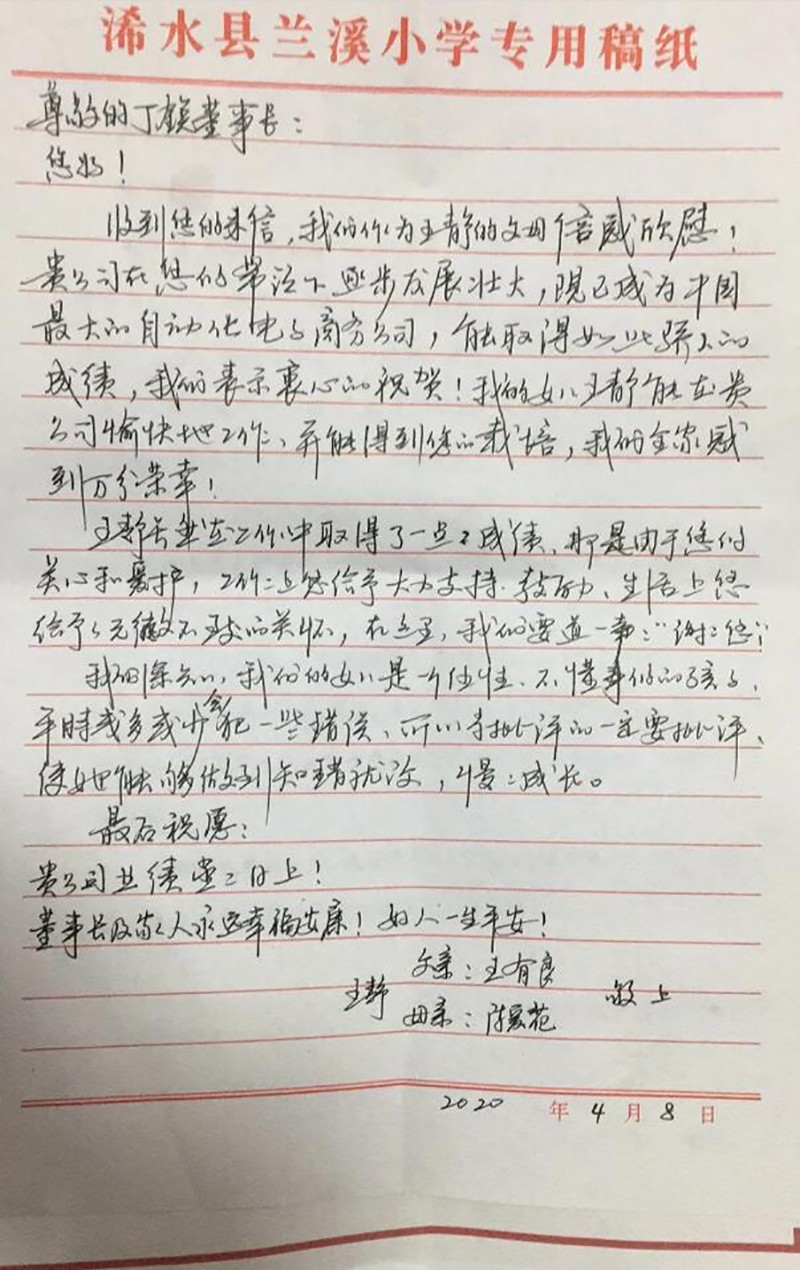 浠水县兰溪小学专用稿纸
尊敬的丁毅董事长：
您好！
收到您的来信，我们作为王静的父母倍感欣慰！
贵公司在您的带领下逐步发展壮大，现已成为中国
最大的自动化电子商务公司，能取得如此骄人的
成绩，我们表示衷心的祝贺！我的女儿王静能在贵
公司愉快地工作、并能得到您的栽培，我们全家感
到万分荣幸！
王静虽然在工作中取得了一点点成绩、那是由于您的
关心和爱护，工作上您给予大力支持、鼓励、生活上您
给予了无微不至的关怀，在这里，我们要道一声："谢谢您！"
我们深知，我们的女儿是一个任性、不懂事的孩子，
平时或多或少会犯一些错误、所以该批评的一定要批评、
使她能够做到知错就改，慢慢成长。
最后祝愿：
贵公司业绩蒸蒸日上！
董事长及家人永远幸福安康！好人一生平安！
王静
父亲：王有良
母亲：陈爱花
敬上
2020年4月8日